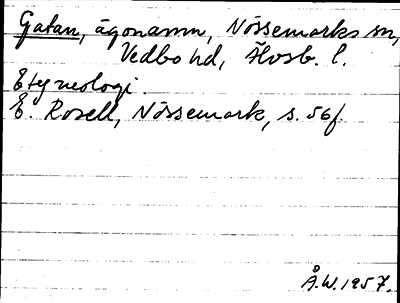 Gatan, ägonamn, Nössemarks sn,
Vedbo hd, Älvsb. l.
Etymologi.
E. Rosell, Nössemark, s. 56f.
Å.W. 1957.